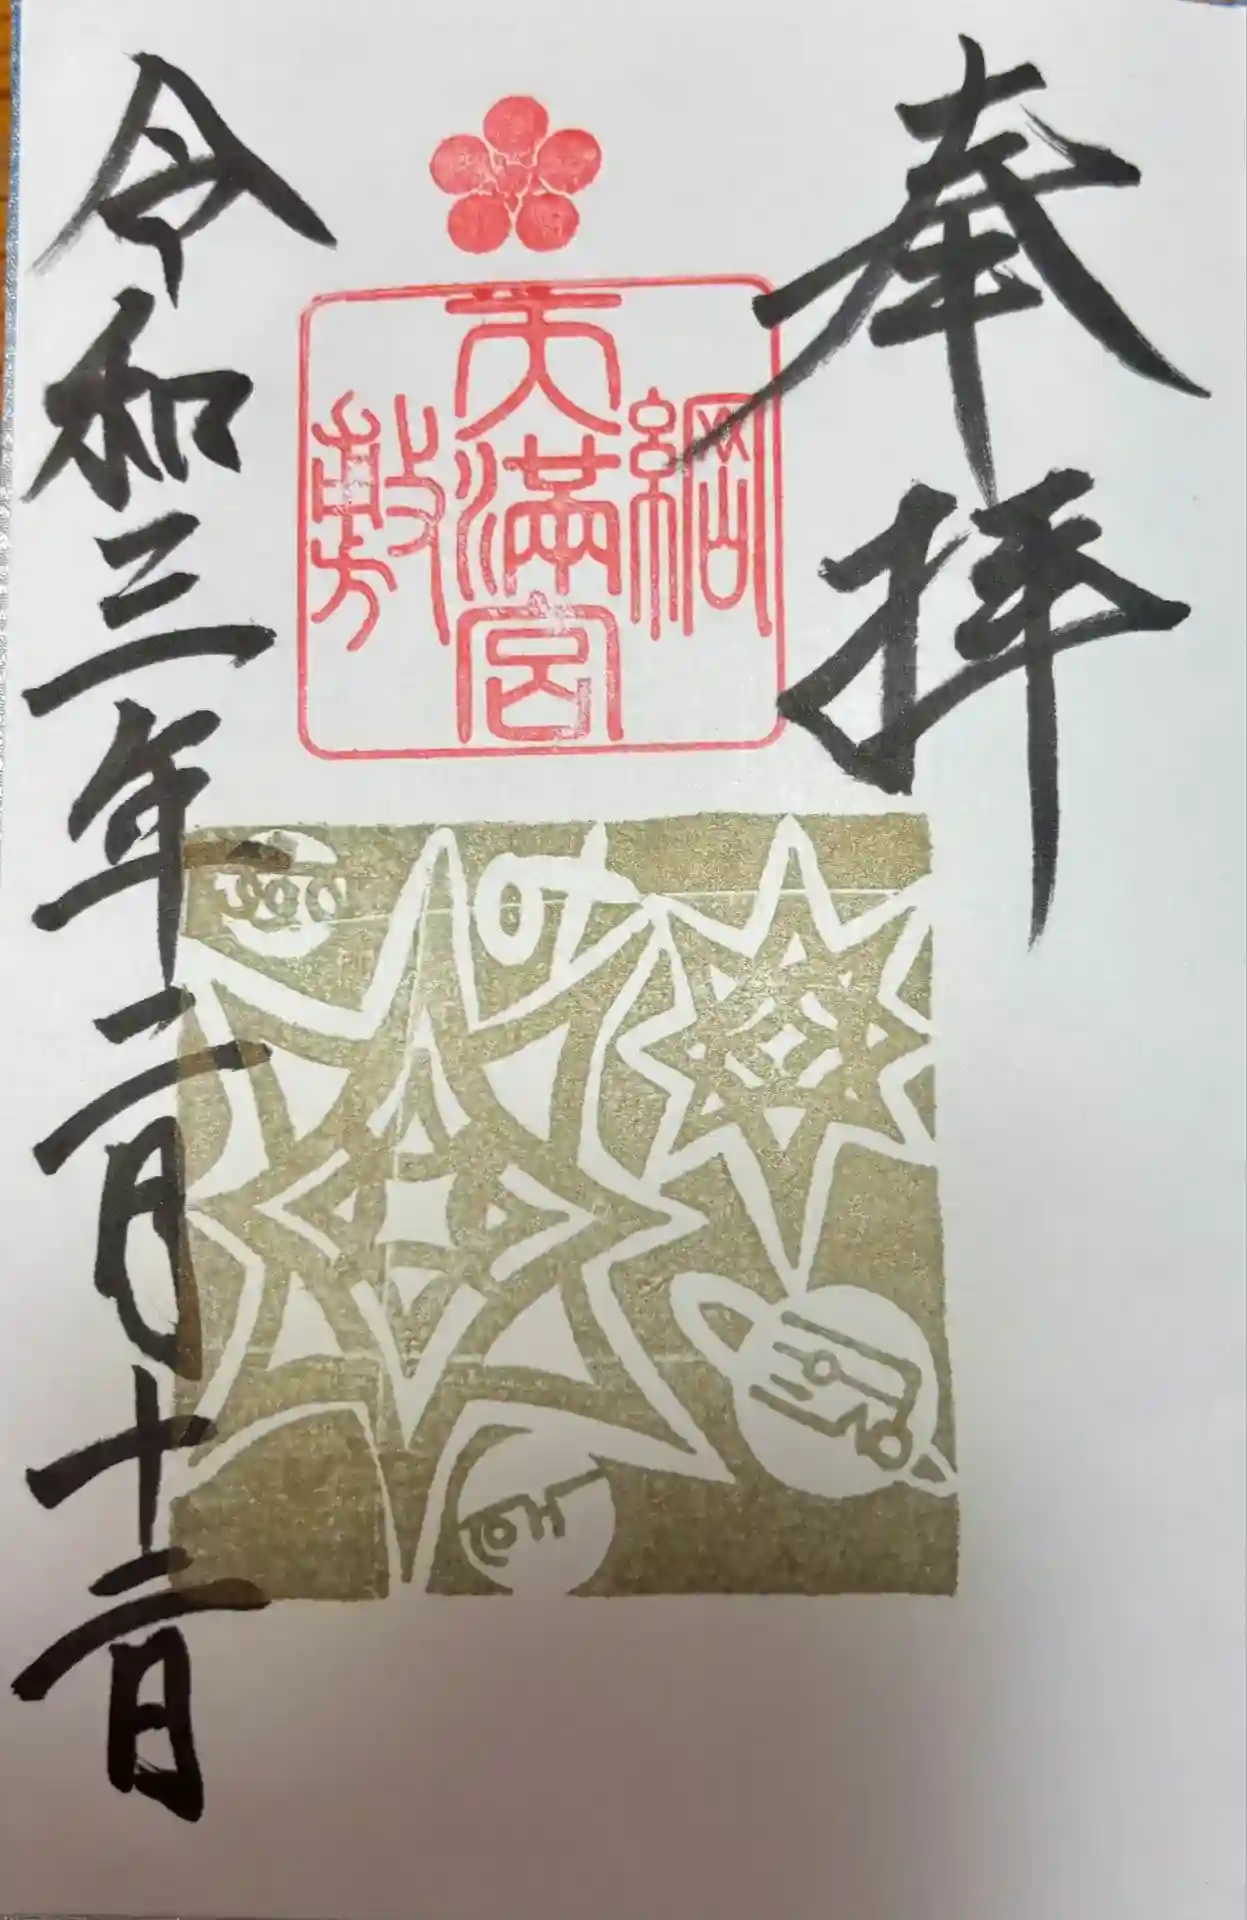 奉拝
綱敷天満宮
令和三年二月十二日